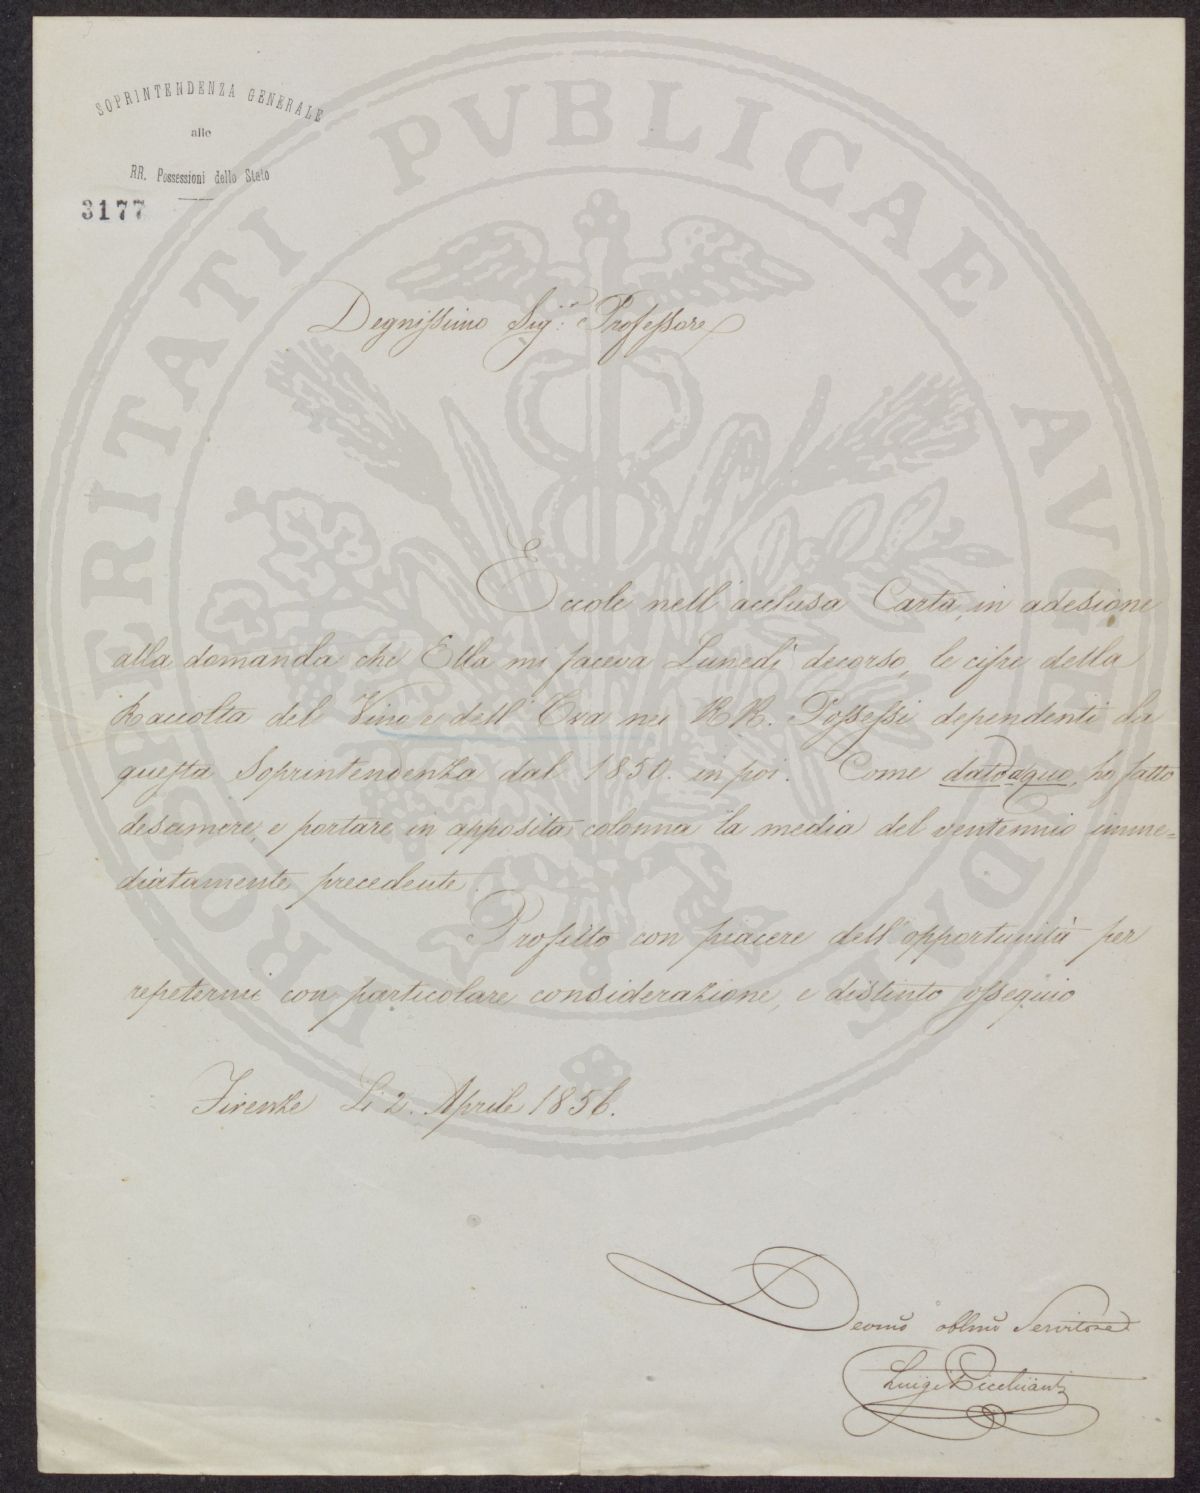 SOPRINTENDENZA GENERALE
alle
RR. Possessioni dello Stato
3177
PROSPERITATI PVBLICAE AVGENDAE
Degnissimo Sigr: Professore
Eccole nell'acclusa Carta, in adesione
alla domanda che Ella mi faceva Lunedì decorso, le cifre della
Raccolta del Vino e dell'Uva nei RR. Possessi dependenti da
questa Soprintendenza dal 1850. in poi. Come dato a quo, ho fatto
desumere, e portare in apposita colonna la media del ventennio imme=
diatamente precedente.
Profitto con piacere dell'opportunità per
repetermi con particolare considerazione, e distinto ossequio
Firenze Li 2. Aprile 1856.
Devmo oblmo Servitore
Luigi Picchianti